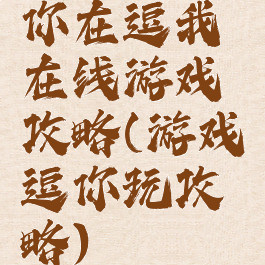 你在逗我
在线游戏
攻略(游戏
逗你玩攻
略)